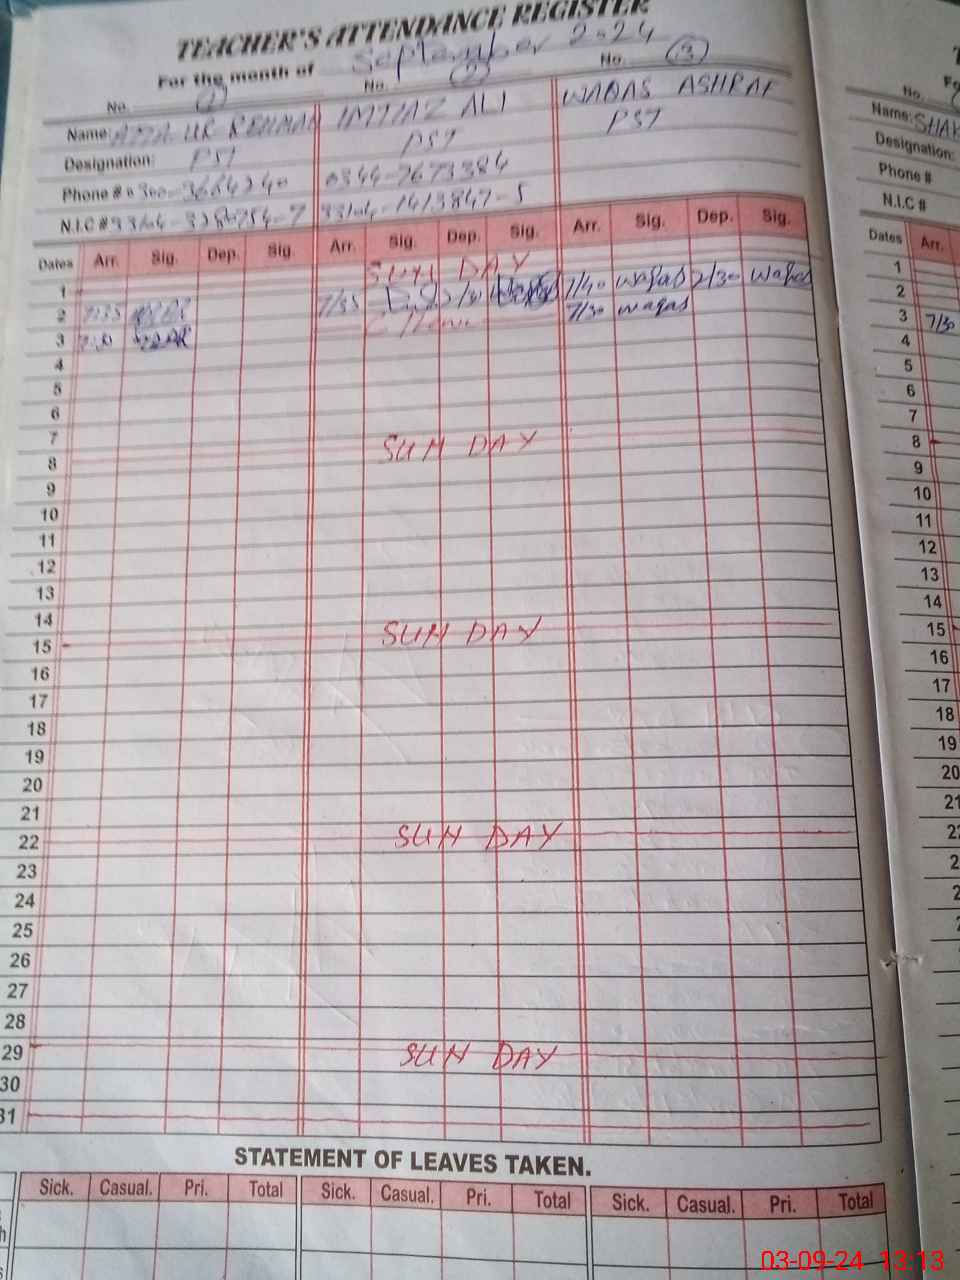 TEACHER'S ATTENDANCE REGISTER
For the month of September 2024
No. (1) No. (2) No. (3)
Name: UR REHMAN IMTIAZ ALI WAQAS ASHRAF
Designation: PST PST PST
Phone # 0344-7673384
N.I.C #
Dates Arr. Sig. Dep. Sig. Arr. Sig. Dep. Sig. Arr. Sig. Dep. Sig.
1 SUN DAY
2 7/35 7/35 7/40 waqas 2/30 waqas
3 7/30 waqas
4
5
6
7
8 SUN DAY
9
10
11
12
13
14
15 SUN DAY
16
17
18
19
20
21
22 SUN DAY
23
24
25
26
27
28
29 SUN DAY
30
31
STATEMENT OF LEAVES TAKEN.
Sick. Casual. Pri. Total Sick. Casual. Pri. Total Sick. Casual. Pri. Total
No.
Name: SHAK
Designation:
Phone #
N.I.C #
Dates Arr.
1
2
3 7/30
4
5
6
7
8
9
10
11
12
13
14
15
16
17
18
19
20
21
22
03-09-24 13:13